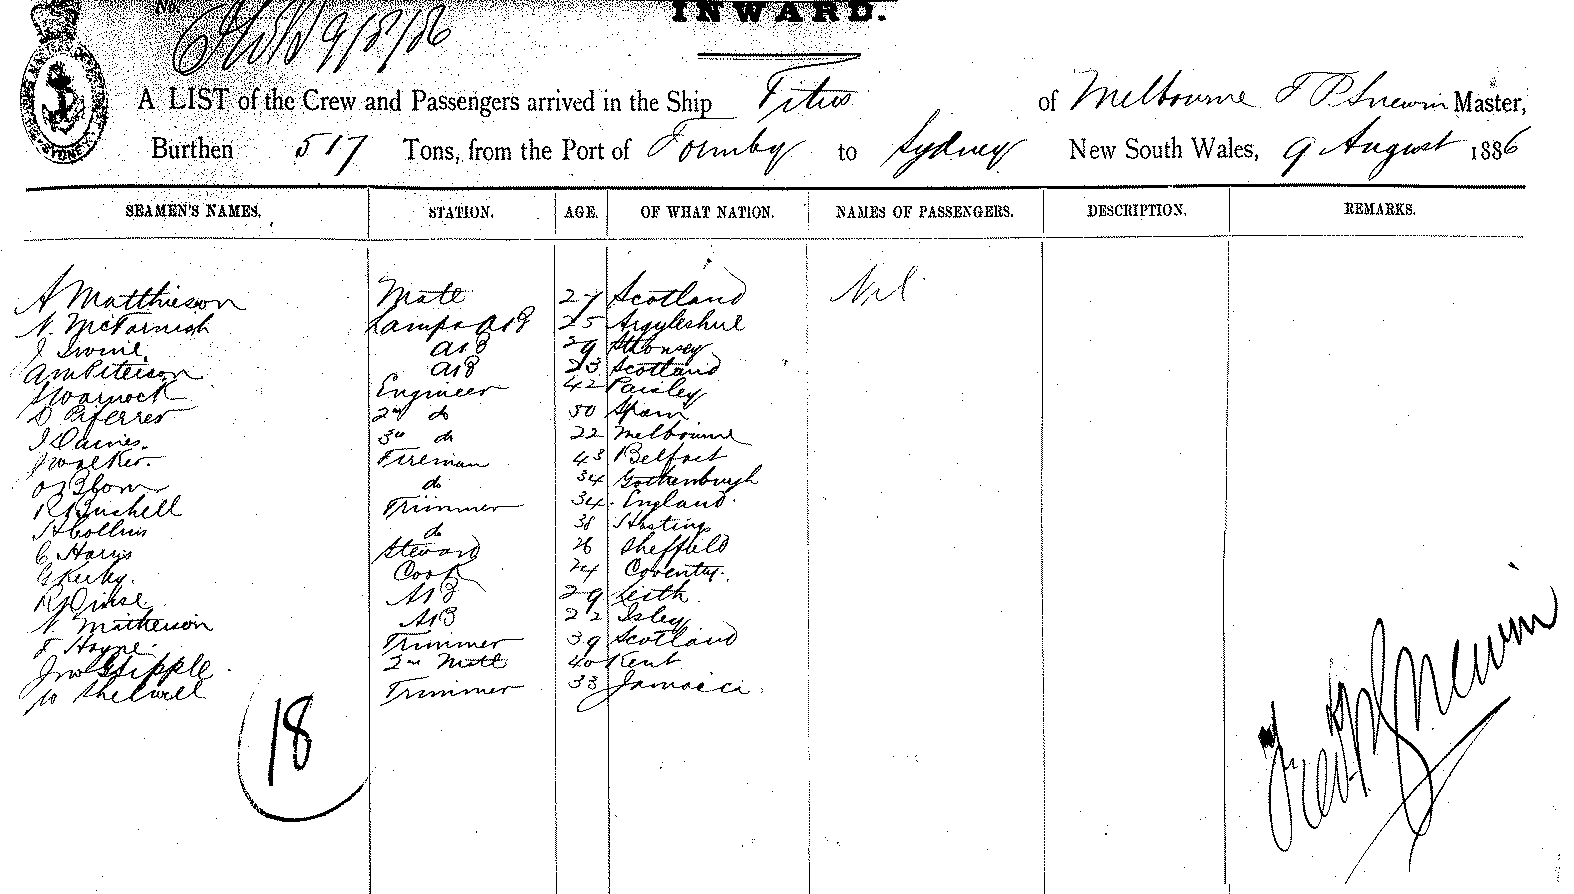 No.
INWARD.
9/8/86
A LIST of the Crew and Passengers arrived in the Ship Titus of Melbourne F P Snewin Master,
Burthen 517 Tons, from the Port of Formby to Sydney New South Wales, 9 August 1886
SEAMEN'S NAMES. STATION. AGE. OF WHAT NATION. NAMES OF PASSENGERS. DESCRIPTION. REMARKS.
A Matthieson Mate 27 Scotland Nil
N. McTarnish Lamps AB 25 Argyleshire
J Irvine. AB 29
A M Peterson AB 23 Scotland
J Warnock Engineer 42 Paisley
D Piferrer 2nd do 50 Spain
J Daines. 3rd do 22 Melbourne
J Walker. Fireman 43 Belfast
O Blom do 34 Gothenburgh
R Bushell Trimmer 34. England.
H Collins do 38 Hastings
C Harris Steward 26 Sheffield
G Kirby. Cook 24 Coventry.
R AB 29 Leith
N. Matheson AB 22 Isley
F Hayne. Trimmer 39 Scotland
Jno Stipple. 2nd Mate 40 Kent
W Shelwell Trimmer 33 Jamaica.
18
Fred P Snewin